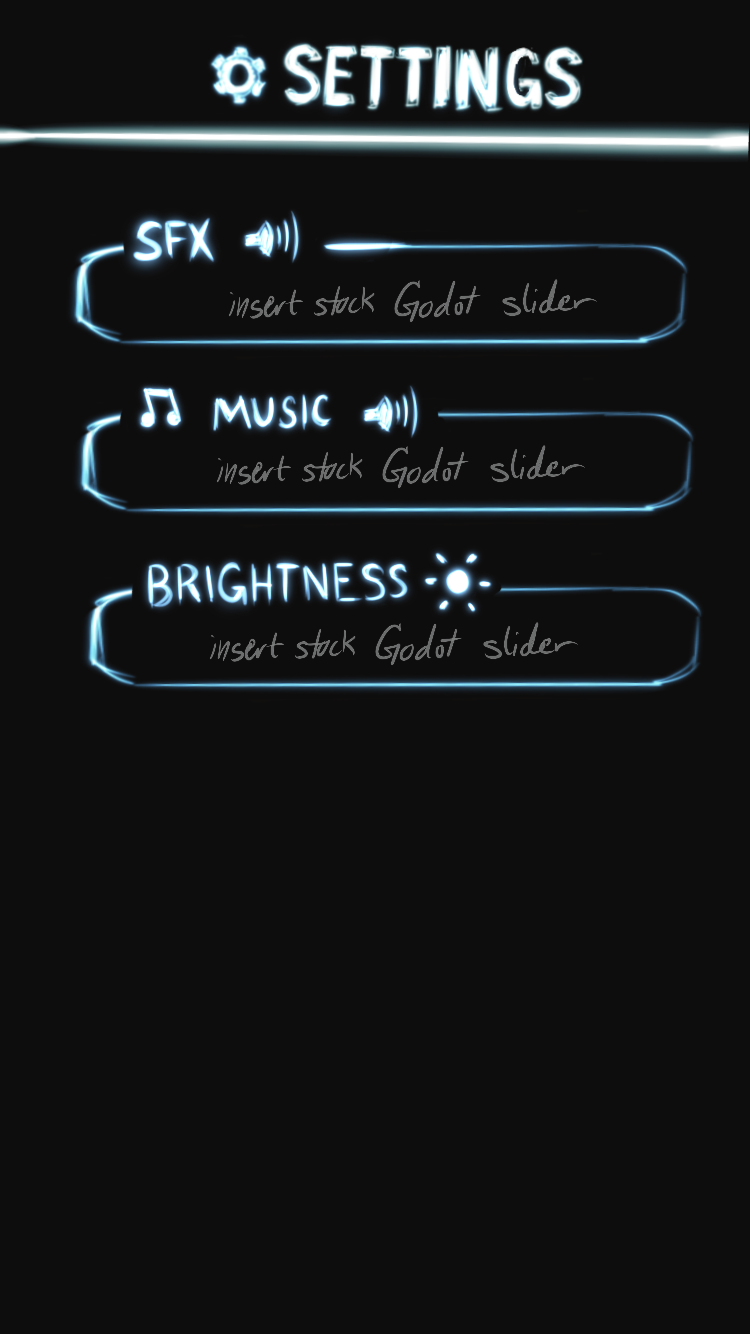 SETTINGS
SFX
insert stock Godot slider
MUSIC
insert stock Godot slider
BRIGHTNESS
insert stock Godot slider